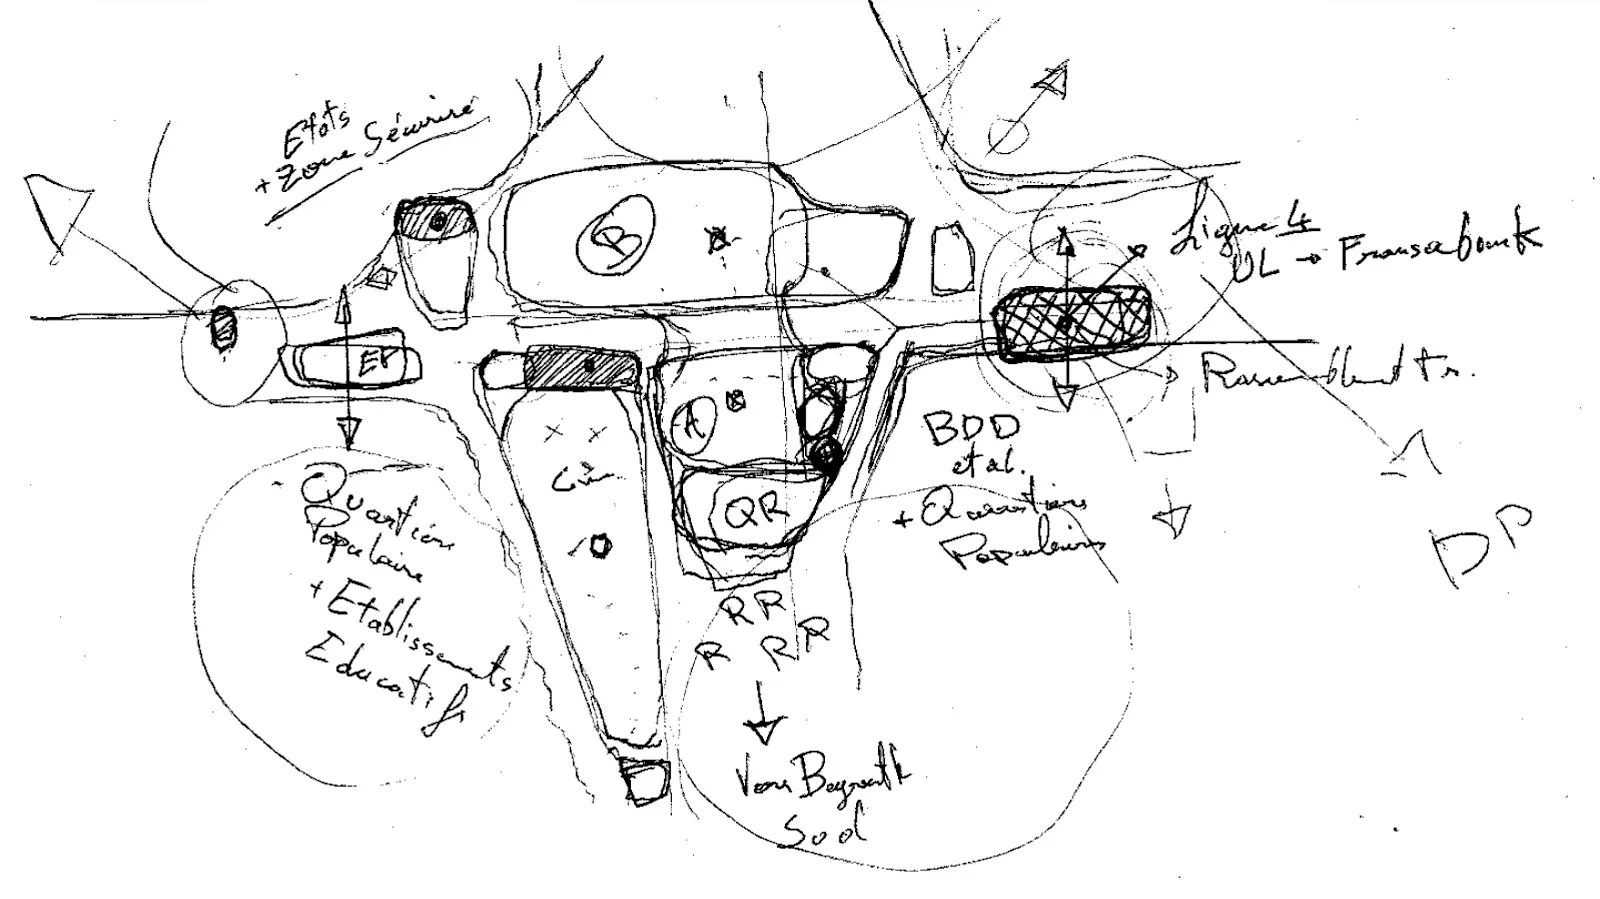 Etats
+ Zone Sécurisé
B
Ligne 4
UL → Fransabank
EP
Rassemblement tr.
A
BDD
et al.
+ Quartiers
Populaires
Cim.
QR
Quartier
Populaire
+ Etablissements
Educatifs
DP
R R
R R R
Vers Beyrouth
Sud